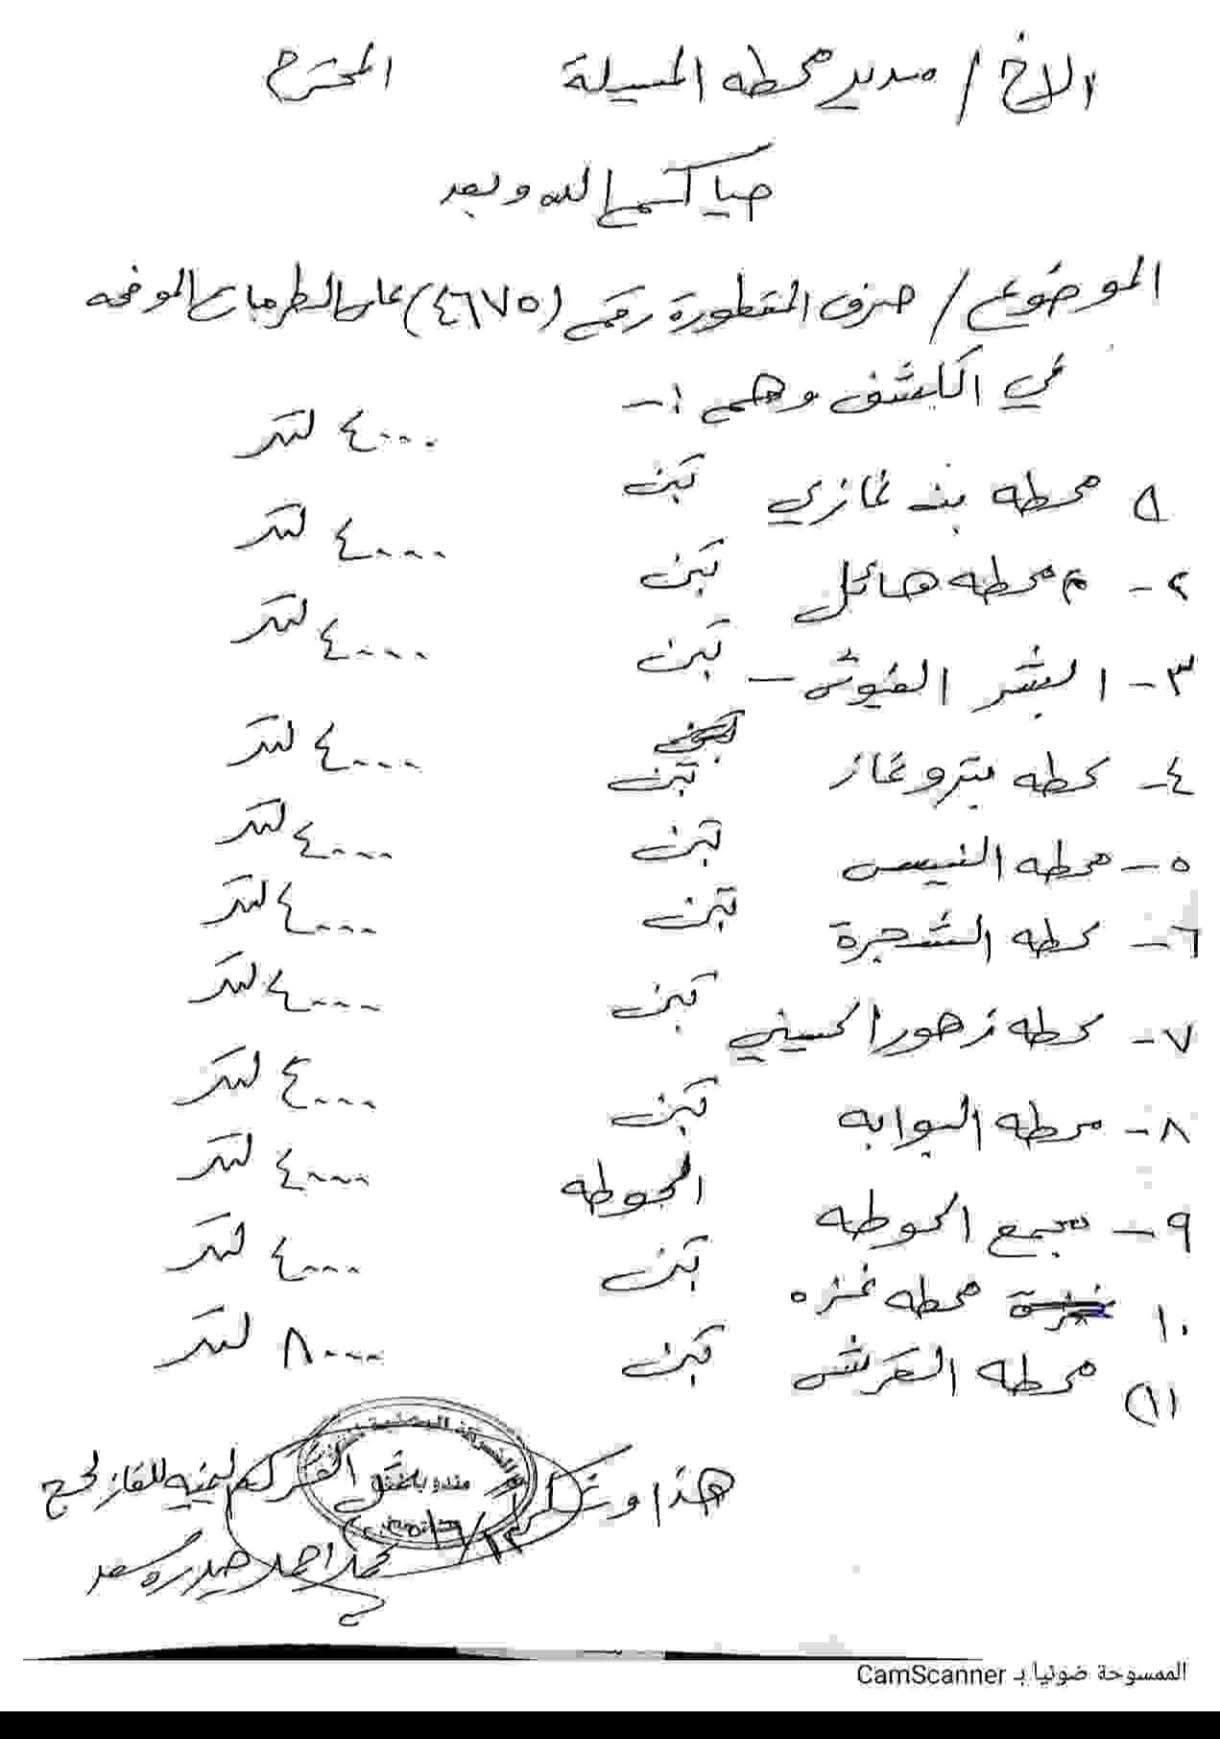 الاخ / مدير محطه المسيلة المحترم
حياكم الله وبعد
الموضوع / صرف المقطورة رقم (٤٦٧٥) على الطرمبات الموضحه
في الكشف وهم :-
١) محطه بن غازي تبن ٤٠٠٠ لتر
٢- محطه هائل تبن ٤٠٠٠ لتر
٣- البشر الفيوش - تبن ٤٠٠٠ لتر
٤- محطه بترو غاز تبن ٤٠٠٠ لتر
٥- محطه النيس تبن ٤٠٠٠ لتر
٦- محطه الشجرة تبن ٤٠٠٠ لتر
٧- محطه زهور الحسيني تبن ٤٠٠٠ لتر
٨- محطه البوابه تبن ٤٠٠٠ لتر
٩- مجمع الحوطه الحوطه ٤٠٠٠ لتر
١٠ محطه غزه تبن ٤٠٠٠ لتر
١١) محطه القرش تبن ٨٠٠٠ لتر
هذا وشكرا
للغاز لحج
محمد احمد حيدره سعد
الممسوحة ضوئيا بـ CamScanner